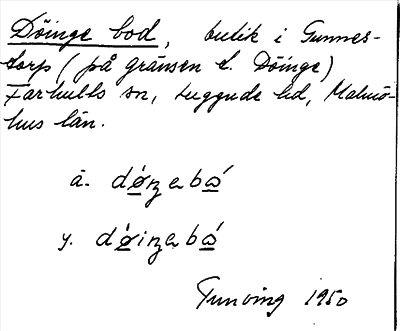 Döinge bod, butik i Gunnes-
torp (på gränsen t. Döinge)
Farhults sn, Luggude hd, Malmö-
hus län.
ä.
y.
Tunving 1950